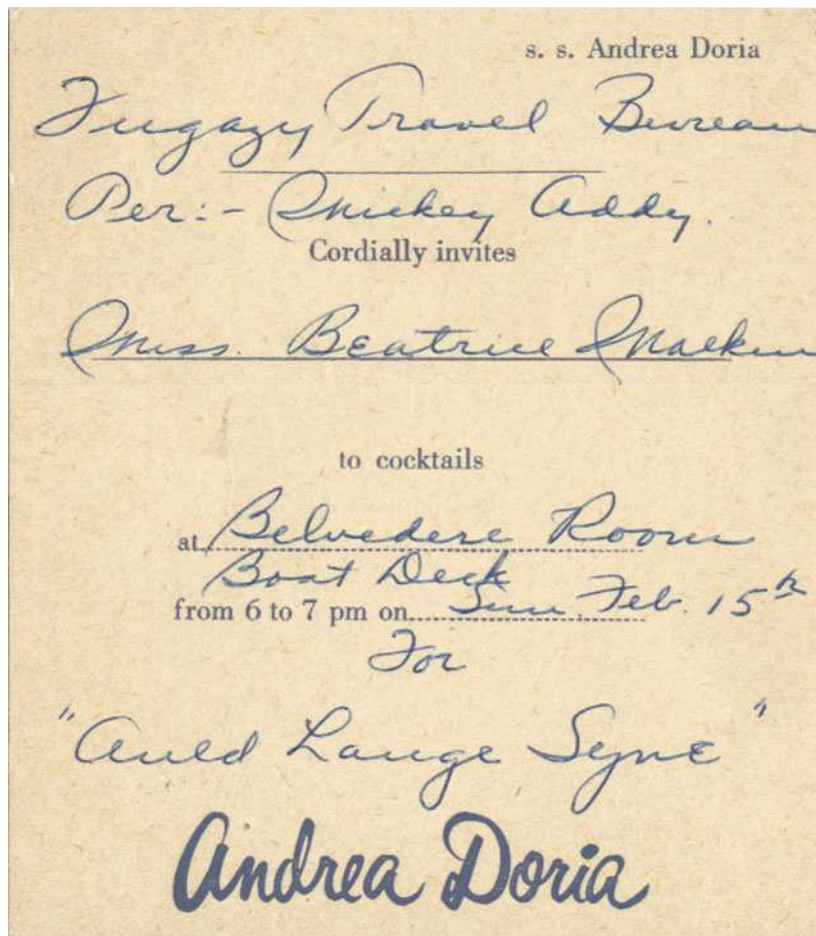 s. s. Andrea Doria
Fugazy Travel Bureau
Per:- Mickey Addy.
Cordially invites
Miss. Beatrice Malkin
to cocktails
at Belvedere Room
Boat Deck
from 6 to 7 pm on Sun. Feb. 15th
For
"Auld Lange Syne"
Andrea Doria